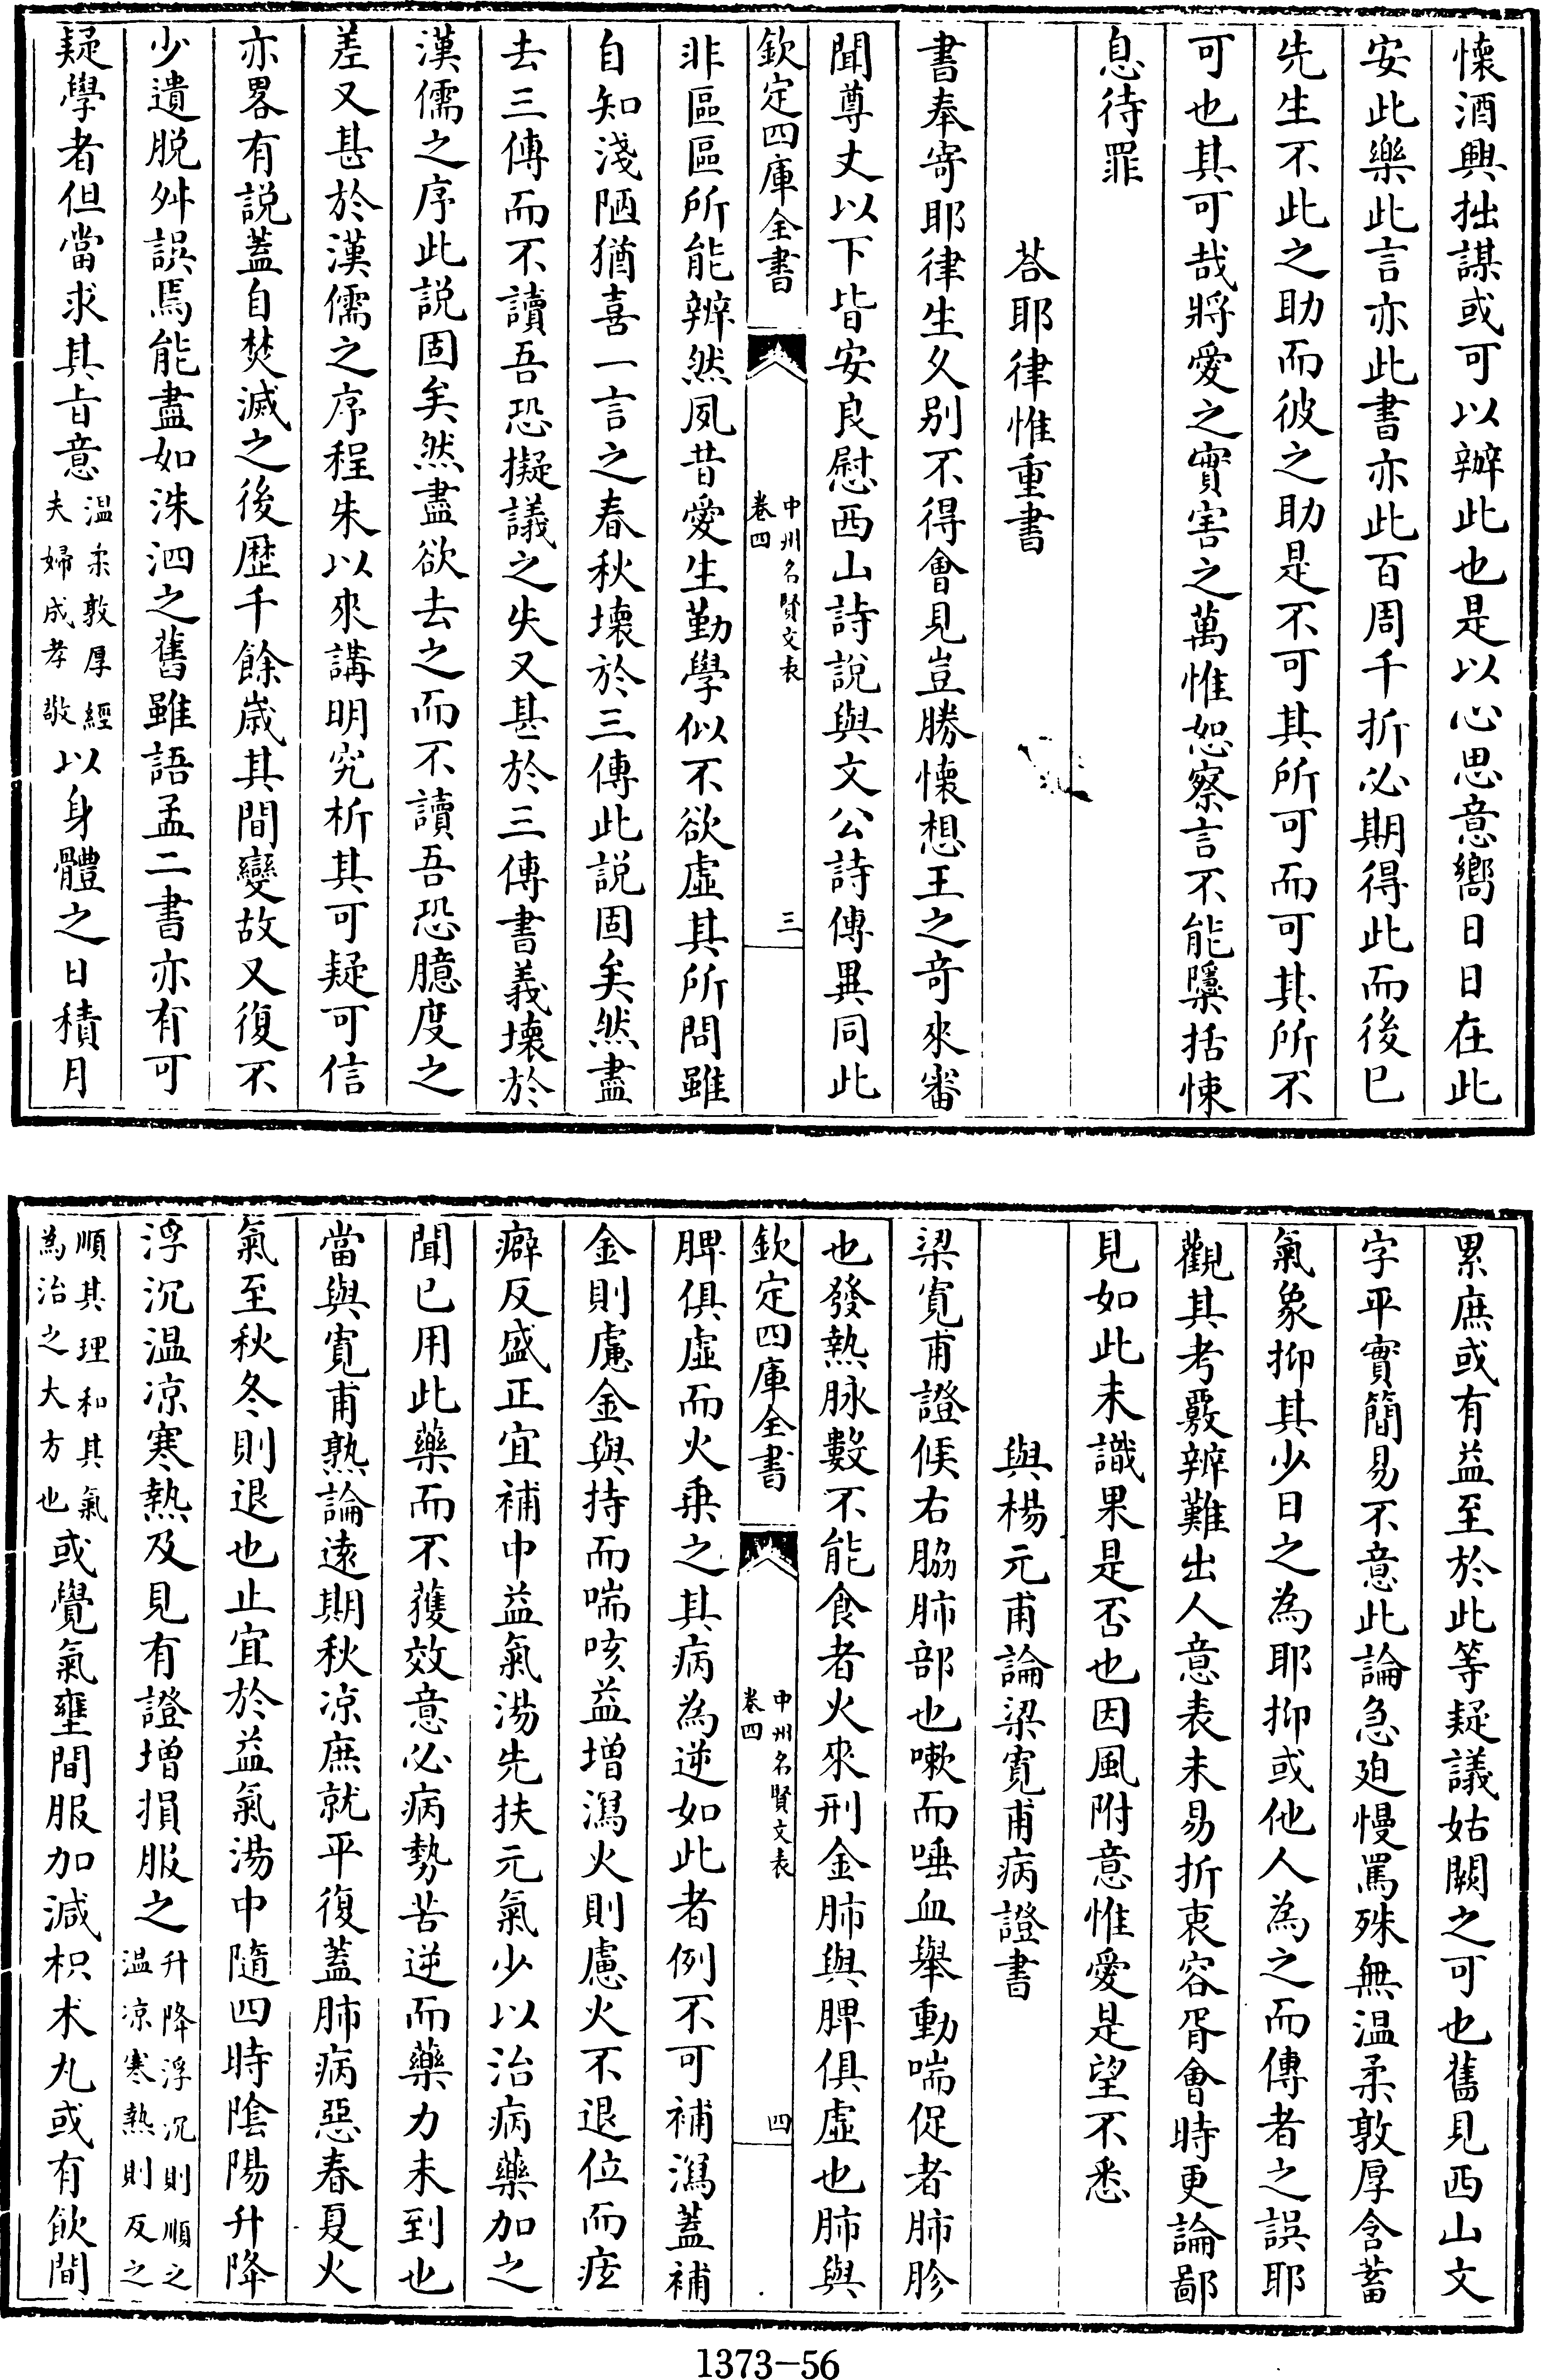 懐酒興拙謀或可以辦此也是以心思意嚮日日在此
安此樂此言亦此書亦此百周千折必期得此而後已
先生不此之助而彼之助是不可其所可而可其所不
可也其可哉將愛之實害之萬惟恕察言不能隱括悚
息待罪
荅耶律惟重書
書奉寄耶律生久别不得會見豈勝懐想王之竒來審
聞尊丈以下皆安良慰西山詩説與文公詩傳異同此
欽定四庫全書
中州名賢文表
卷四
三
非區區所能辨然夙昔愛生勤學似不欲虚其所問雖
自知淺陋猶喜一言之春秋壊於三傳此説固矣然盡
去三傳而不讀吾恐擬議之失又甚於三傳書義壊於
漢儒之序此説固矣然盡欲去之而不讀吾恐臆度之
差又甚於漢儒之序程朱以來講明究析其可疑可信
亦畧有説蓋自焚滅之後歴千餘嵗其間變故又復不
少遺脱舛誤焉能盡如洙泗之舊雖語孟二書亦有可
疑學者但當求其㫖意
温柔敦厚經
夫婦成孝敬
以身體之日積月
累庶或有益至於此等疑議姑闕之可也舊見西山文
字平實簡易不意此論急廹慢罵殊無温柔敦厚含蓄
氣象抑其少日之為耶抑或他人為之而傳者之誤耶
觀其考覈辨難出人意表未易折衷容胥會時更論鄙
見如此未識果是否也因風附意惟愛是望不悉
與楊元甫論梁寛甫病證書
梁寛甫證候右脇肺部也嗽而唾血舉動喘促者肺胗
也發熱脉數不能食者火來刑金肺與脾俱虚也肺與
欽定四庫全書
中州名賢文表
卷四
四
脾俱虚而火乗之其病為逆如此者例不可補瀉蓋補
金則慮金與持而喘咳益增瀉火則慮火不退位而痃
癖反盛正宜補中益氣湯先扶元氣少以治病藥加之
聞已用此藥而不獲效意必病勢苦逆而藥力未到也
當與寛甫熟論遠期秋凉庶就平復蓋肺病惡春夏火
氣至秋冬則退也止宜於益氣湯中隨四時隂陽升降
浮沉温凉寒熱及見有證增損服之
升降浮沉則順之
温凉寒熱則反之
順其理和其氣
為治之大方也
或覺氣壅間服加減枳术丸或有飲間
1373-56